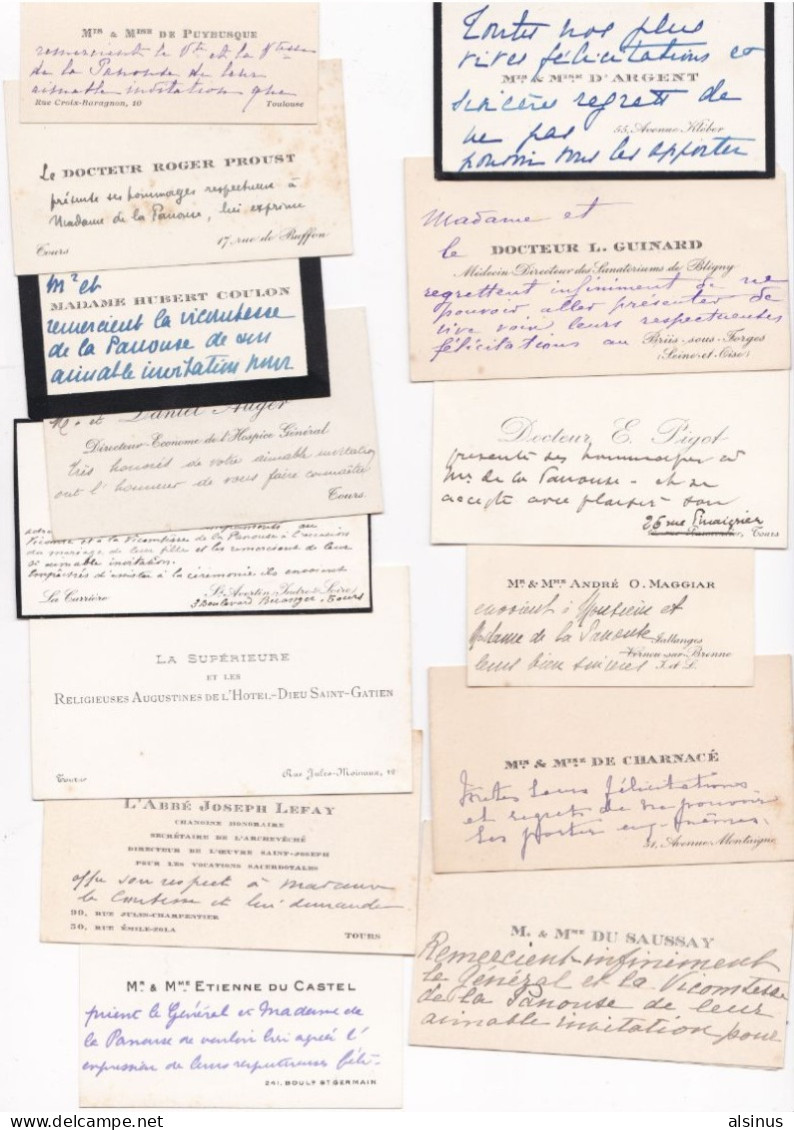 Mʳ & Mᵐᵉ DE PUYBUSQUE
remercient le Vᵗᵉ et la Vᵗᵉˢˢᵉ
de la Panouse de leur
aimable invitation que
Rue Croix-Baragnon, 10 Toulouse
Le DOCTEUR ROGER PROUST
présente ses hommages respectueux à
Madame de la Panouse, lui exprime
17, rue de Buffon
Tours
Mʳ et
MADAME HUBERT COULON
remercient la vicomtesse
de la Panouse de son
aimable invitation pour
M. et Daniel Auger
Directeur-Econome de l'Hospice Général
très honorés de votre aimable invitation
ont l'honneur de vous faire connaître
Tours
au
Vicomte et à la Vicomtesse de la Panouse à l'occasion
du mariage de leur fille et les remercient de leur
si aimable invitation.
Empêchés d'assister à la cérémonie ils envoient
La Carrière Sᵗ Avertin (Indre & Loire)
3 Boulevard Béranger. Tours
LA SUPÉRIEURE
ET LES
RELIGIEUSES AUGUSTINES DE L'HOTEL-DIEU SAINT-GATIEN
Tours Rue Jules-Moinaux, 10
L'ABBÉ JOSEPH LEFAY
CHANOINE HONORAIRE
SECRÉTAIRE DE L'ARCHEVÊCHÉ
DIRECTEUR DE L'ŒUVRE SAINT-JOSEPH
POUR LES VOCATIONS SACERDOTALES
offre son respect à Madame
la Comtesse et lui demande
99, RUE JULES-CHARPENTIER
50, RUE ÉMILE-ZOLA TOURS
Mʳ & Mᵐᵉ ETIENNE DU CASTEL
prient le Général et Madame de
la Panouse de vouloir bien agréer l'
expression de leurs respectueuses féli-
241, BOULᵈ Sᵗ GERMAIN
Toutes nos plus
vives félicitations et
Mʳ & Mᵐᵉ D'ARGENT
sincères regrets de
ne pas
55, Avenue Kléber
pouvoir vous les apporter
Madame et
le DOCTEUR L. GUINARD
Médecin-Directeur des Sanatoriums de Bligny
regrettent infiniment de ne
pouvoir aller présenter de
vive voix leurs respectueuses
félicitations au Briis-sous-Forges
(Seine-et-Oise)
Docteur E. Pigot
présente ses hommages à
Mᵉ de la Panouse - et
accepte avec plaisir son
26 rue
Tours
Mʳ & Mᵐᵉ ANDRÉ O. MAGGIAR
envoient à Monsieur et
Madame de la Panouse
Jallanges
leurs bien sincères
Vernou-sur-Brenne
I. et L.
Mʳ & Mᵐᵉ DE CHARNACÉ
Toutes leurs félicitations
et regrets de ne pouvoir
les porter eux-mêmes.
51, Avenue Montaigne
M. & Mᵐᵉ DU SAUSSAY
Remercient infiniment
le Général et la Vicomtesse
de la Panouse de leur
aimable invitation pour
alsinus